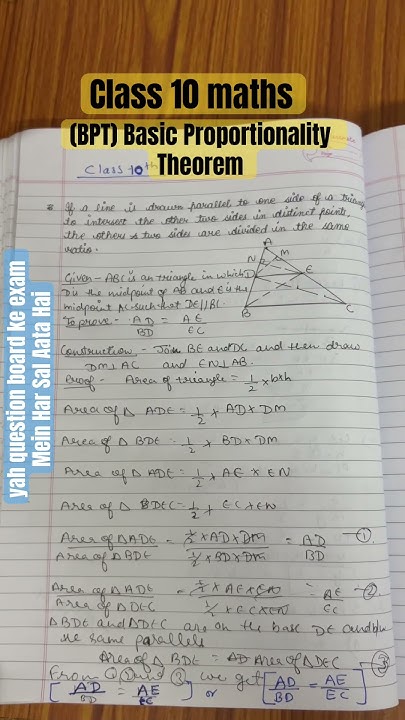 Class 10 maths
(BPT) Basic Proportionality
Theorem
Class 10th
If a line is drawn parallel to one side of a triang
to intersect the other two sides in distinct points,
the others two sides are divided in the same
ratio.
Given - ABC is an triangle in which
D is the midpoint of AB and E is the
midpoint AC such that DE||BC.
To prove - AD/BD = AE/EC
A
N
M
D
E
B
C
Construction - Join BE and DC and then draw
DM⊥AC and EN⊥AB.
Proof - Area of triangle = 1/2 × b×h
Area of △ ADE = 1/2 × AD × DM
Area of △ BDE = 1/2 × BD × DM
Area of △ ADE = 1/2 × AE × EN
Area of △ DEC = 1/2 × EC × EN
Area of △ ADE / Area of △ BDE = 1/2 × AD × DM / 1/2 × BD × DM = AD/BD ①
Area of △ ADE / Area of △ DEC = 1/2 × AE × EN / 1/2 × EC × EN = AE/EC ②
△ BDE and △ DEC are on the base DE and b/w
the same parallels
Area of △ BDE = Area of △ DEC ③
From ① ② and ③ we get
[AD/BD = AE/EC] or [AD/BD = AE/EC]
yah question board ke exam
Mein Har Sal Aata Hai